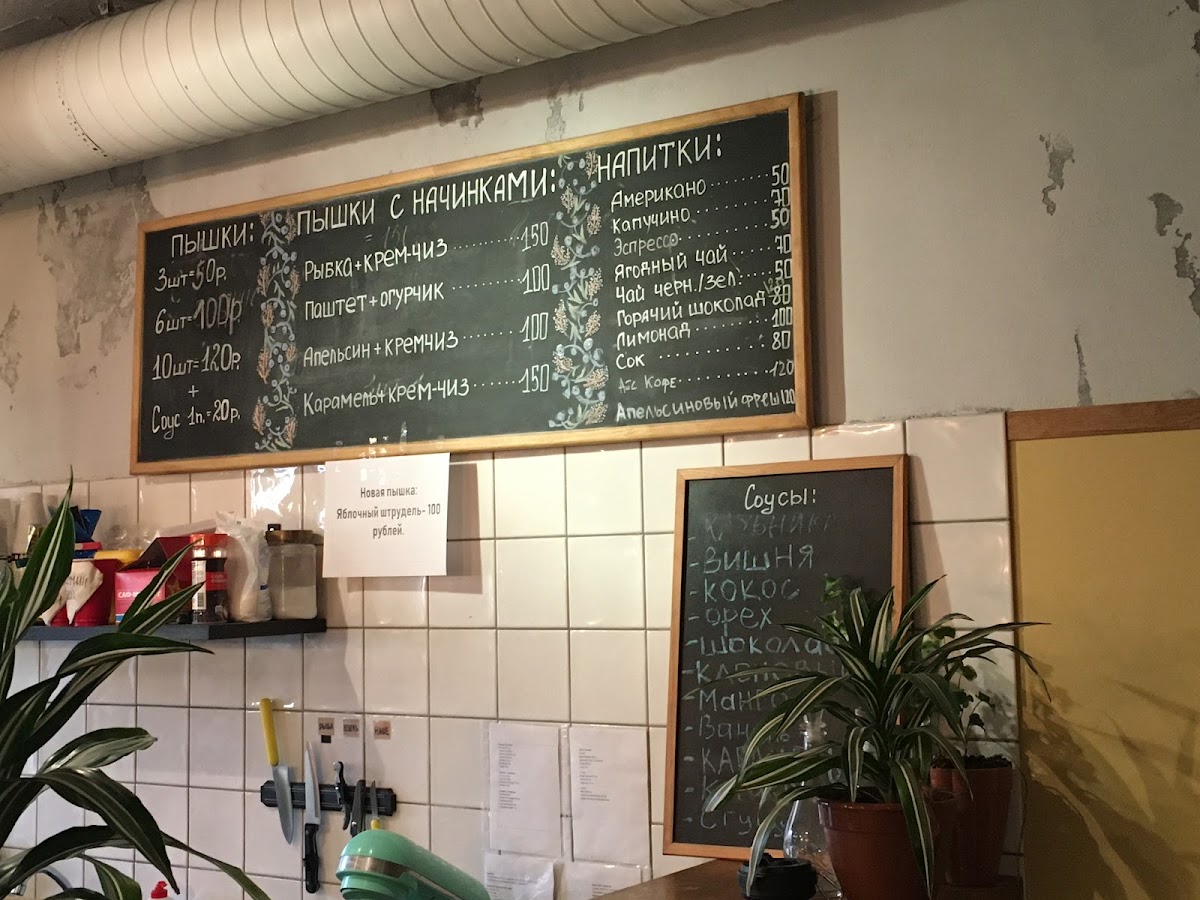 ПЫШКИ:
3шт=50р.
6шт=100р
10шт=120р.
+
Соус 1п.=20р.
ПЫШКИ С НАЧИНКАМИ:
Рыбка+крем-чиз 150
Паштет+огурчик 100
Апельсин+кремчиз 100
Карамель+крем-чиз 150
НАПИТКИ:
Американо 50
Капучино 70
Эспрессо 50
Ягодный чай 70
Чай черн./зел. 50
Горячий шоколад 80
Лимонад 100
Сок 80
Айс Кофе 120
Апельсиновый фреш 120
Новая пышка:
Яблочный штрудель- 100
рублей.
Соусы:
-Клубника
-Вишня
-Кокос
-Орех
-Шоколад
-Манго